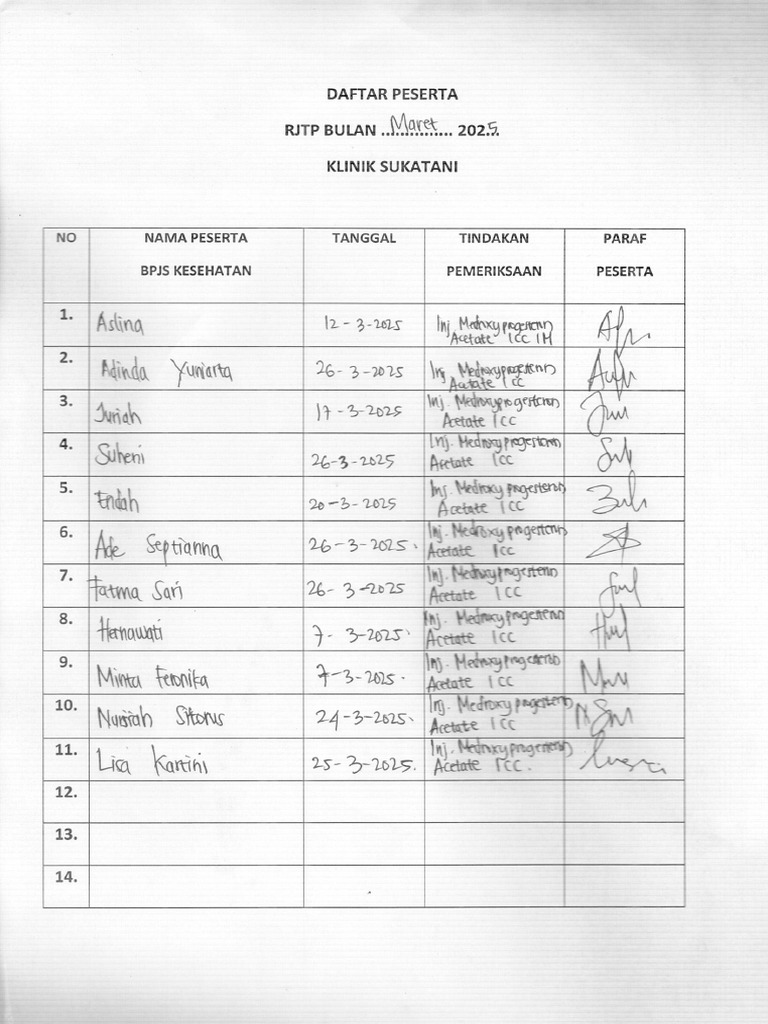 DAFTAR PESERTA
RJTP BULAN ...Maret... 2025
KLINIK SUKATANI
NO NAMA PESERTA BPJS KESEHATAN TANGGAL TINDAKAN PEMERIKSAAN PARAF PESERTA
1. Aslina 12-3-2025 Inj. Medroxyprogesteron
Acetate 1CC IM
2. Adinda Yuniarta 26-3-2025 Inj. Medroxyprogesteron
Acetate 1CC
3. Juriah 17-3-2025 Inj. Medroxyprogesteron
Acetate 1CC
4. Suheni 26-3-2025 Inj. Medroxyprogesteron
Acetate 1CC
5. Endah 20-3-2025 Inj. Medroxyprogesteron
Acetate 1CC
6. Ade Septianna 26-3-2025. Inj. Medroxyprogesteron
Acetate 1CC
7. Fatma Sari 26-3-2025 Inj. Medroxyprogesteron
Acetate 1CC
8. Hernawati 7-3-2025. Inj. Medroxyprogesteron
Acetate 1CC
9. Minta Feronika 7-3-2025. Inj. Medroxyprogesteron
Acetate 1CC
10. Sitorus 24-3-2025. Inj. Medroxyprogesteron
Acetate 1CC
11. Lisa Kartini 25-3-2025. Inj. Medroxyprogesteron
Acetate 1CC.
12.
13.
14.